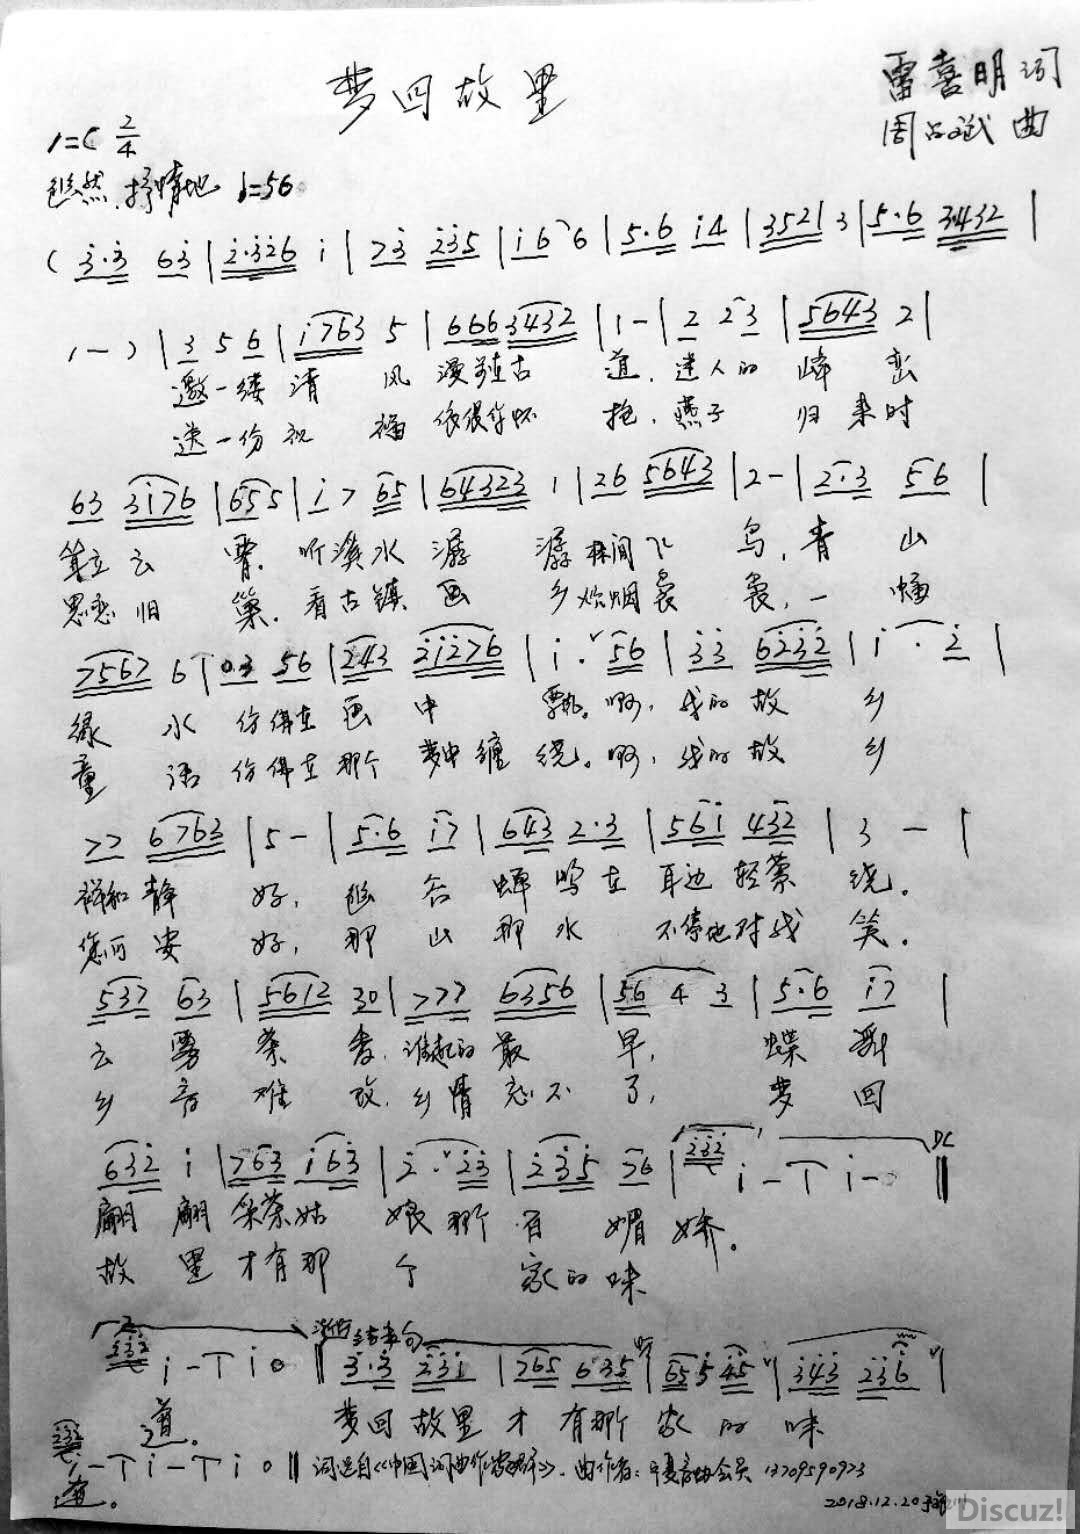 梦回故里
雷喜明 词
周占斌 曲
1=C 2/4
悠然.抒情地 ♩=56
( 3·3 63 | 2·326 i | 73 235 | i6 6 | 5·6 i4 | 3521 3 | 5·6 3432 |
1 - ) | 3 5 6 | i763 5 | 666 3432 | 1 - | 2 23 | 5643 2 |
邀一缕清 风 漫 古 道,迷人的 峰 峦
送一份祝 福 怀 抱,燕子 归来时
63 3i76 | 655 | i7 65 | 64323 1 | 26 5643 | 2 - | 2·3 56 |
耸立云 霄.听溪水 潺 潺林间飞 鸟,青 山
思恋旧 巢.看古镇 画 乡炊烟袅 袅,一 幅
7567 6 | 0·3 56 | 243 2i276 | i· 56 | 33 6232 | i · 2 |
绿 水 仿佛在 画 中 飘。啊,我的故 乡
童 话 仿佛在 那个 梦中缠 绕。啊,我的故 乡
77 6763 | 5 - | 5·6 i7 | 643 2·3 | 56i 432 | 3 - |
祥和静 好,幽 谷 蝉鸣在 耳边轻萦 绕。
您可安 好,那 山 那水 不停地对我 笑。
537 63 | 5612 30 | 777 6356 | 56 4 3 | 5·6 i7 |
云 雾 茶 香.谁起的 最 早, 蝶 舞
乡 音 难 改.乡情 忘不 了, 梦 回
632 i | 763 i63 | 2· 23 | 235 76 | 232 i - - i - 0 || DC
翩 翩 采茶姑 娘那个 百 媚 娇。
故 里 才有那 个 家的味
232 i - - i 0 || 渐慢 结束句 3·3 223i | 765 635 | 655 45 | 343 236 |
道。 梦回故里才 有那个 家 的 味
232 i - - i - - i 0 || 词选自《中国词曲作家群》.曲作者:宁夏音协会员 13709590923
道。
2018.12.20
Discuz!